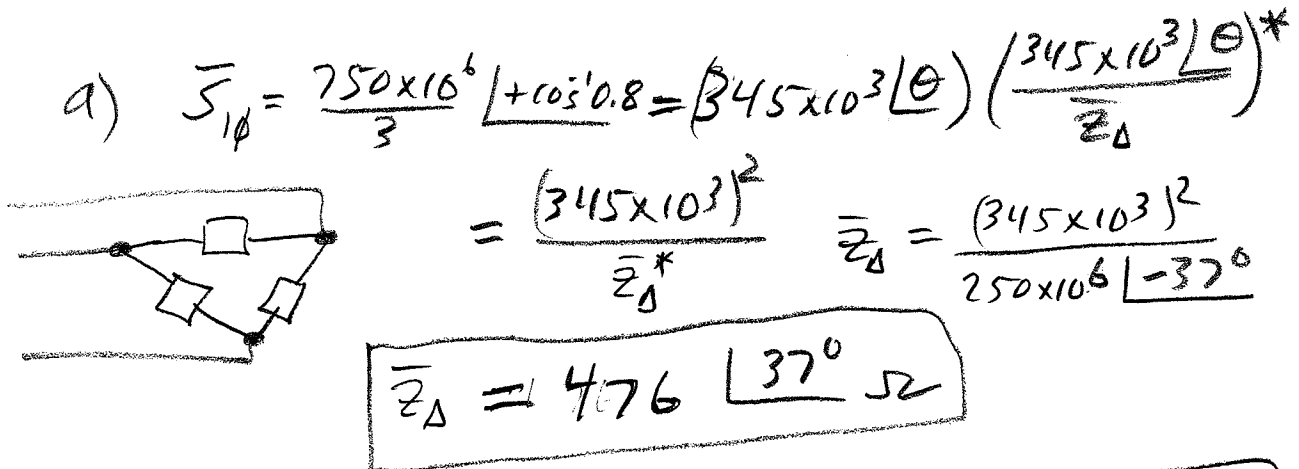 a) S̄₁ϕ = 750x10⁶/3 ∠+cos⁻¹0.8 = (345x10³∠θ) (345x10³∠θ / Z̄Δ)*
= (345x10³)² / Z̄Δ* Z̄Δ = (345x10³)² / 250x10⁶ ∠-37°
Z̄Δ = 476 ∠37° Ω